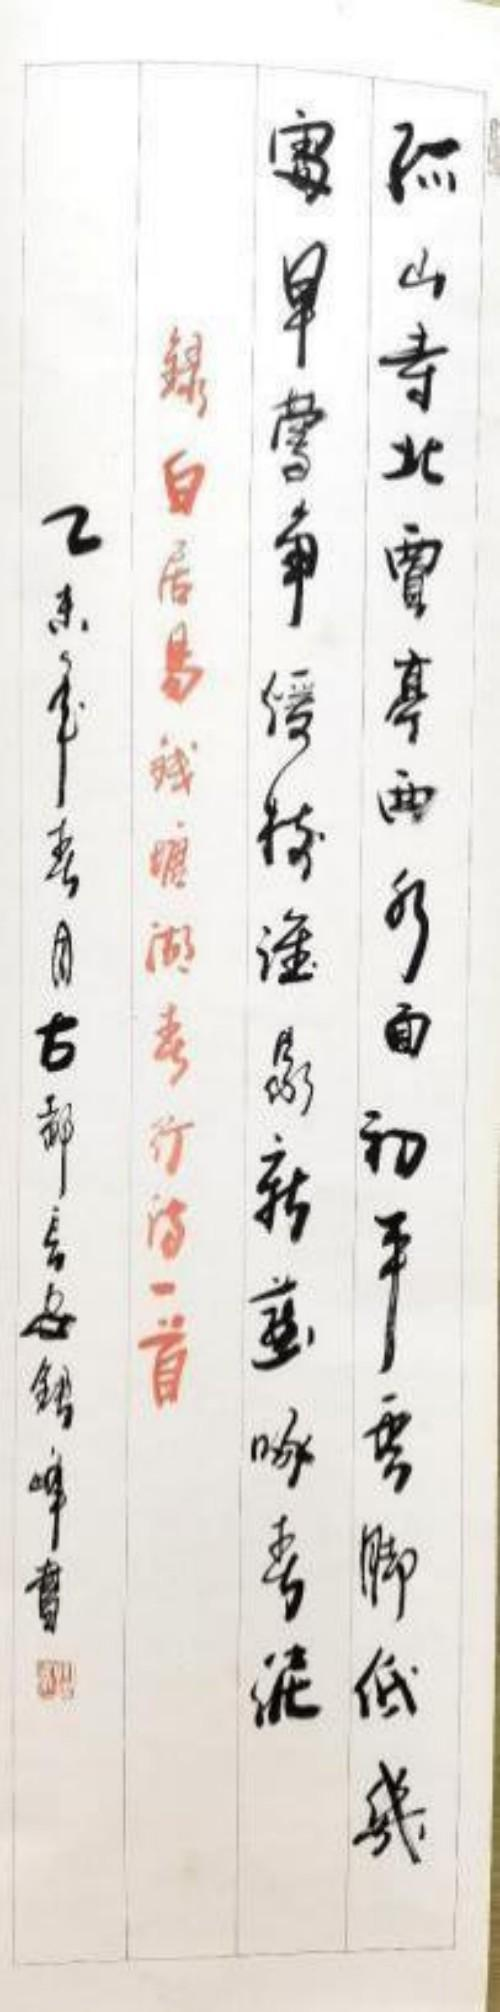 孤山寺北賈亭西水面初平雲脚低幾
處早鶯争暖樹誰家新燕啄春泥
録白居易錢塘湖春行詩一首
乙未年春月古都長安峰書